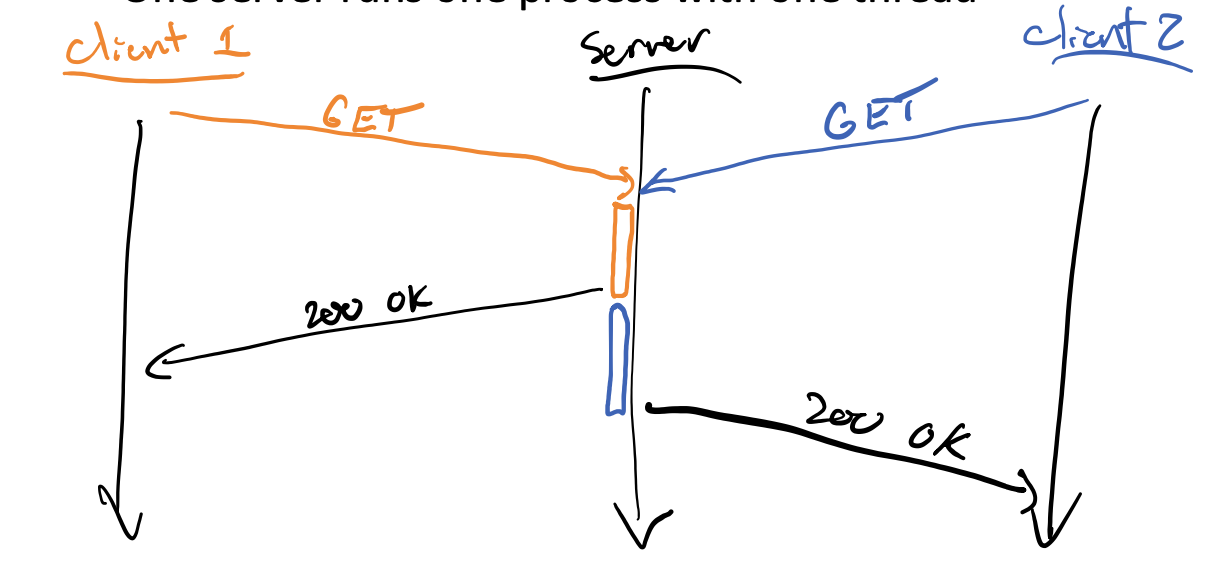 One server runs one process with one thread
client 1
server
client 2
GET
GET
200 OK
200 OK